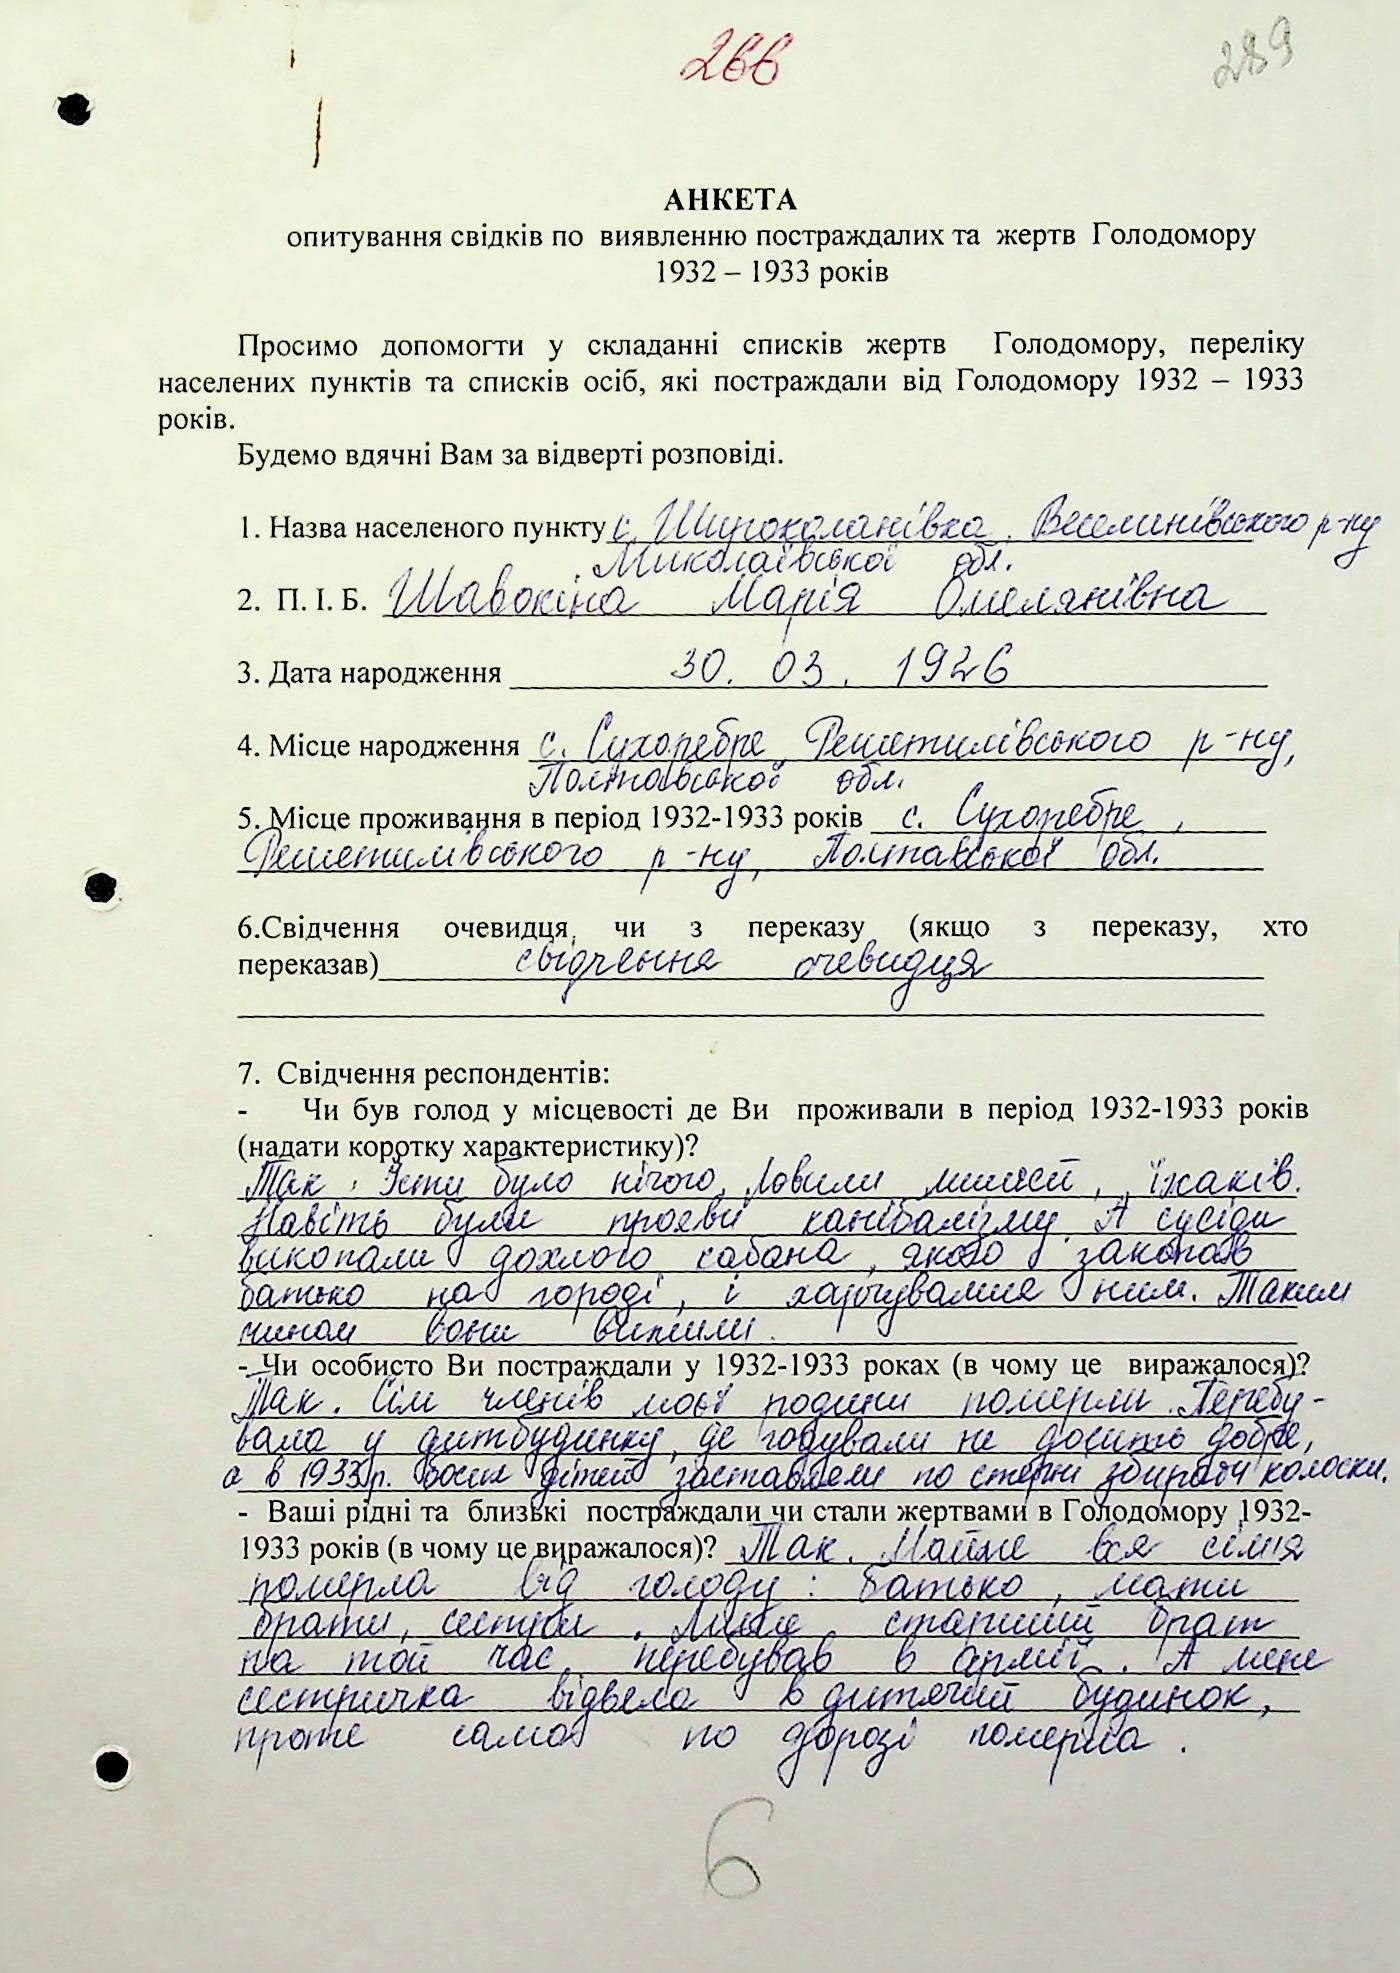 266
289
АНКЕТА
опитування свідків по виявленню постраждалих та жертв Голодомору
1932 – 1933 років
Просимо допомогти у складанні списків жертв Голодомору, переліку
населених пунктів та списків осіб, які постраждали від Голодомору 1932 – 1933
років.
Будемо вдячні Вам за відверті розповіді.
1. Назва населеного пункту с. Широколанівка, Веселинівського р-ну
Миколаївської обл.
2. П. І. Б. Шавокіна Марія Омелянівна
3. Дата народження 30. 03. 1926
4. Місце народження с. Сухоребре, Решетилівського р-ну,
Полтавської обл.
5. Місце проживання в період 1932-1933 років с. Сухоребре,
Решетилівського р-ну, Полтавської обл.
6.Свідчення очевидця, чи з переказу (якщо з переказу, хто
переказав) свідчення очевидця
7. Свідчення респондентів:
- Чи був голод у місцевості де Ви проживали в період 1932-1933 років
(надати коротку характеристику)?
Так. Їсти було нічого. Ловили мишей, їжаків.
Навіть були прояви канібалізму. А сусіди
викопали дохлого кабана, якого закопав
батько на городі, і харчувалися ним. Таким
чином вони вижили.
- Чи особисто Ви постраждали у 1932-1933 роках (в чому це виражалося)?
Так. Сім членів моєї родини померли. Перебу-
вала у дитбудинку, де годували не досить добре,
а в 1933 р. восени дітей заставляли по стерні збирати колоски.
- Ваші рідні та близькі постраждали чи стали жертвами в Голодомору 1932-
1933 років (в чому це виражалося)? Так. Майже вся сім'я
померла від голоду: батько, мати
брати, сестри. Лише старший брат
на той час перебував в армії. А мене
сестричка відвела в дитячий будинок,
проте сама по дорозі померла.
6